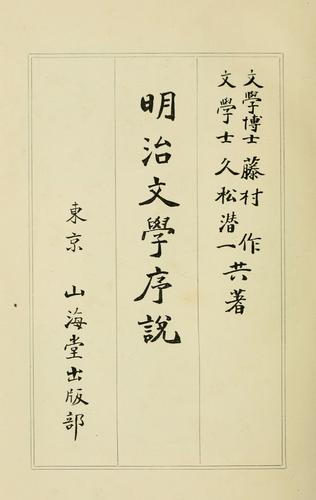 文學博士 藤村 作
文學士 久松潜一 共著
明治文學序說
東京 山海堂出版部